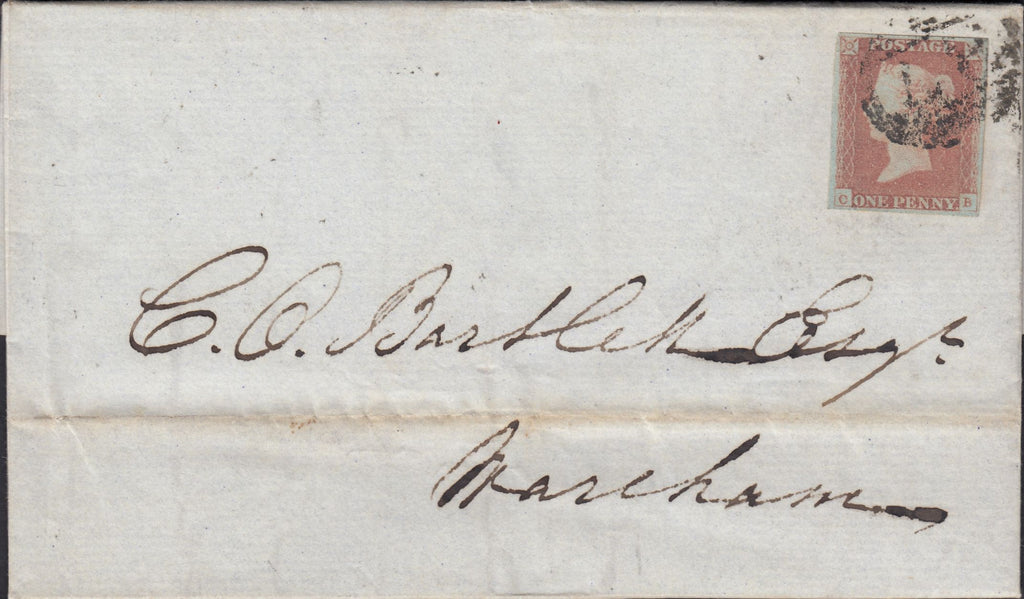 POSTAGE
C ONE PENNY B
C. O. Bartlett Esqr.
Wareham